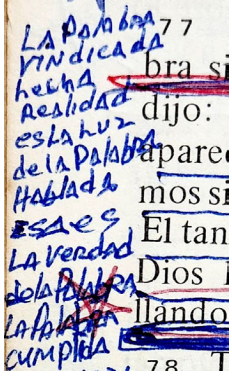 77
LA PALABRA
VINDICADA
hecha
REALIDAD
es LA LUZ
de LA PALABRA
HABLADA
ESA ES
LA VERDAD
de LA PALABRA
LA PALABRA
CUMPLIDA
bra si
dijo:
apare
mos si
El tan
Dios
llando
78